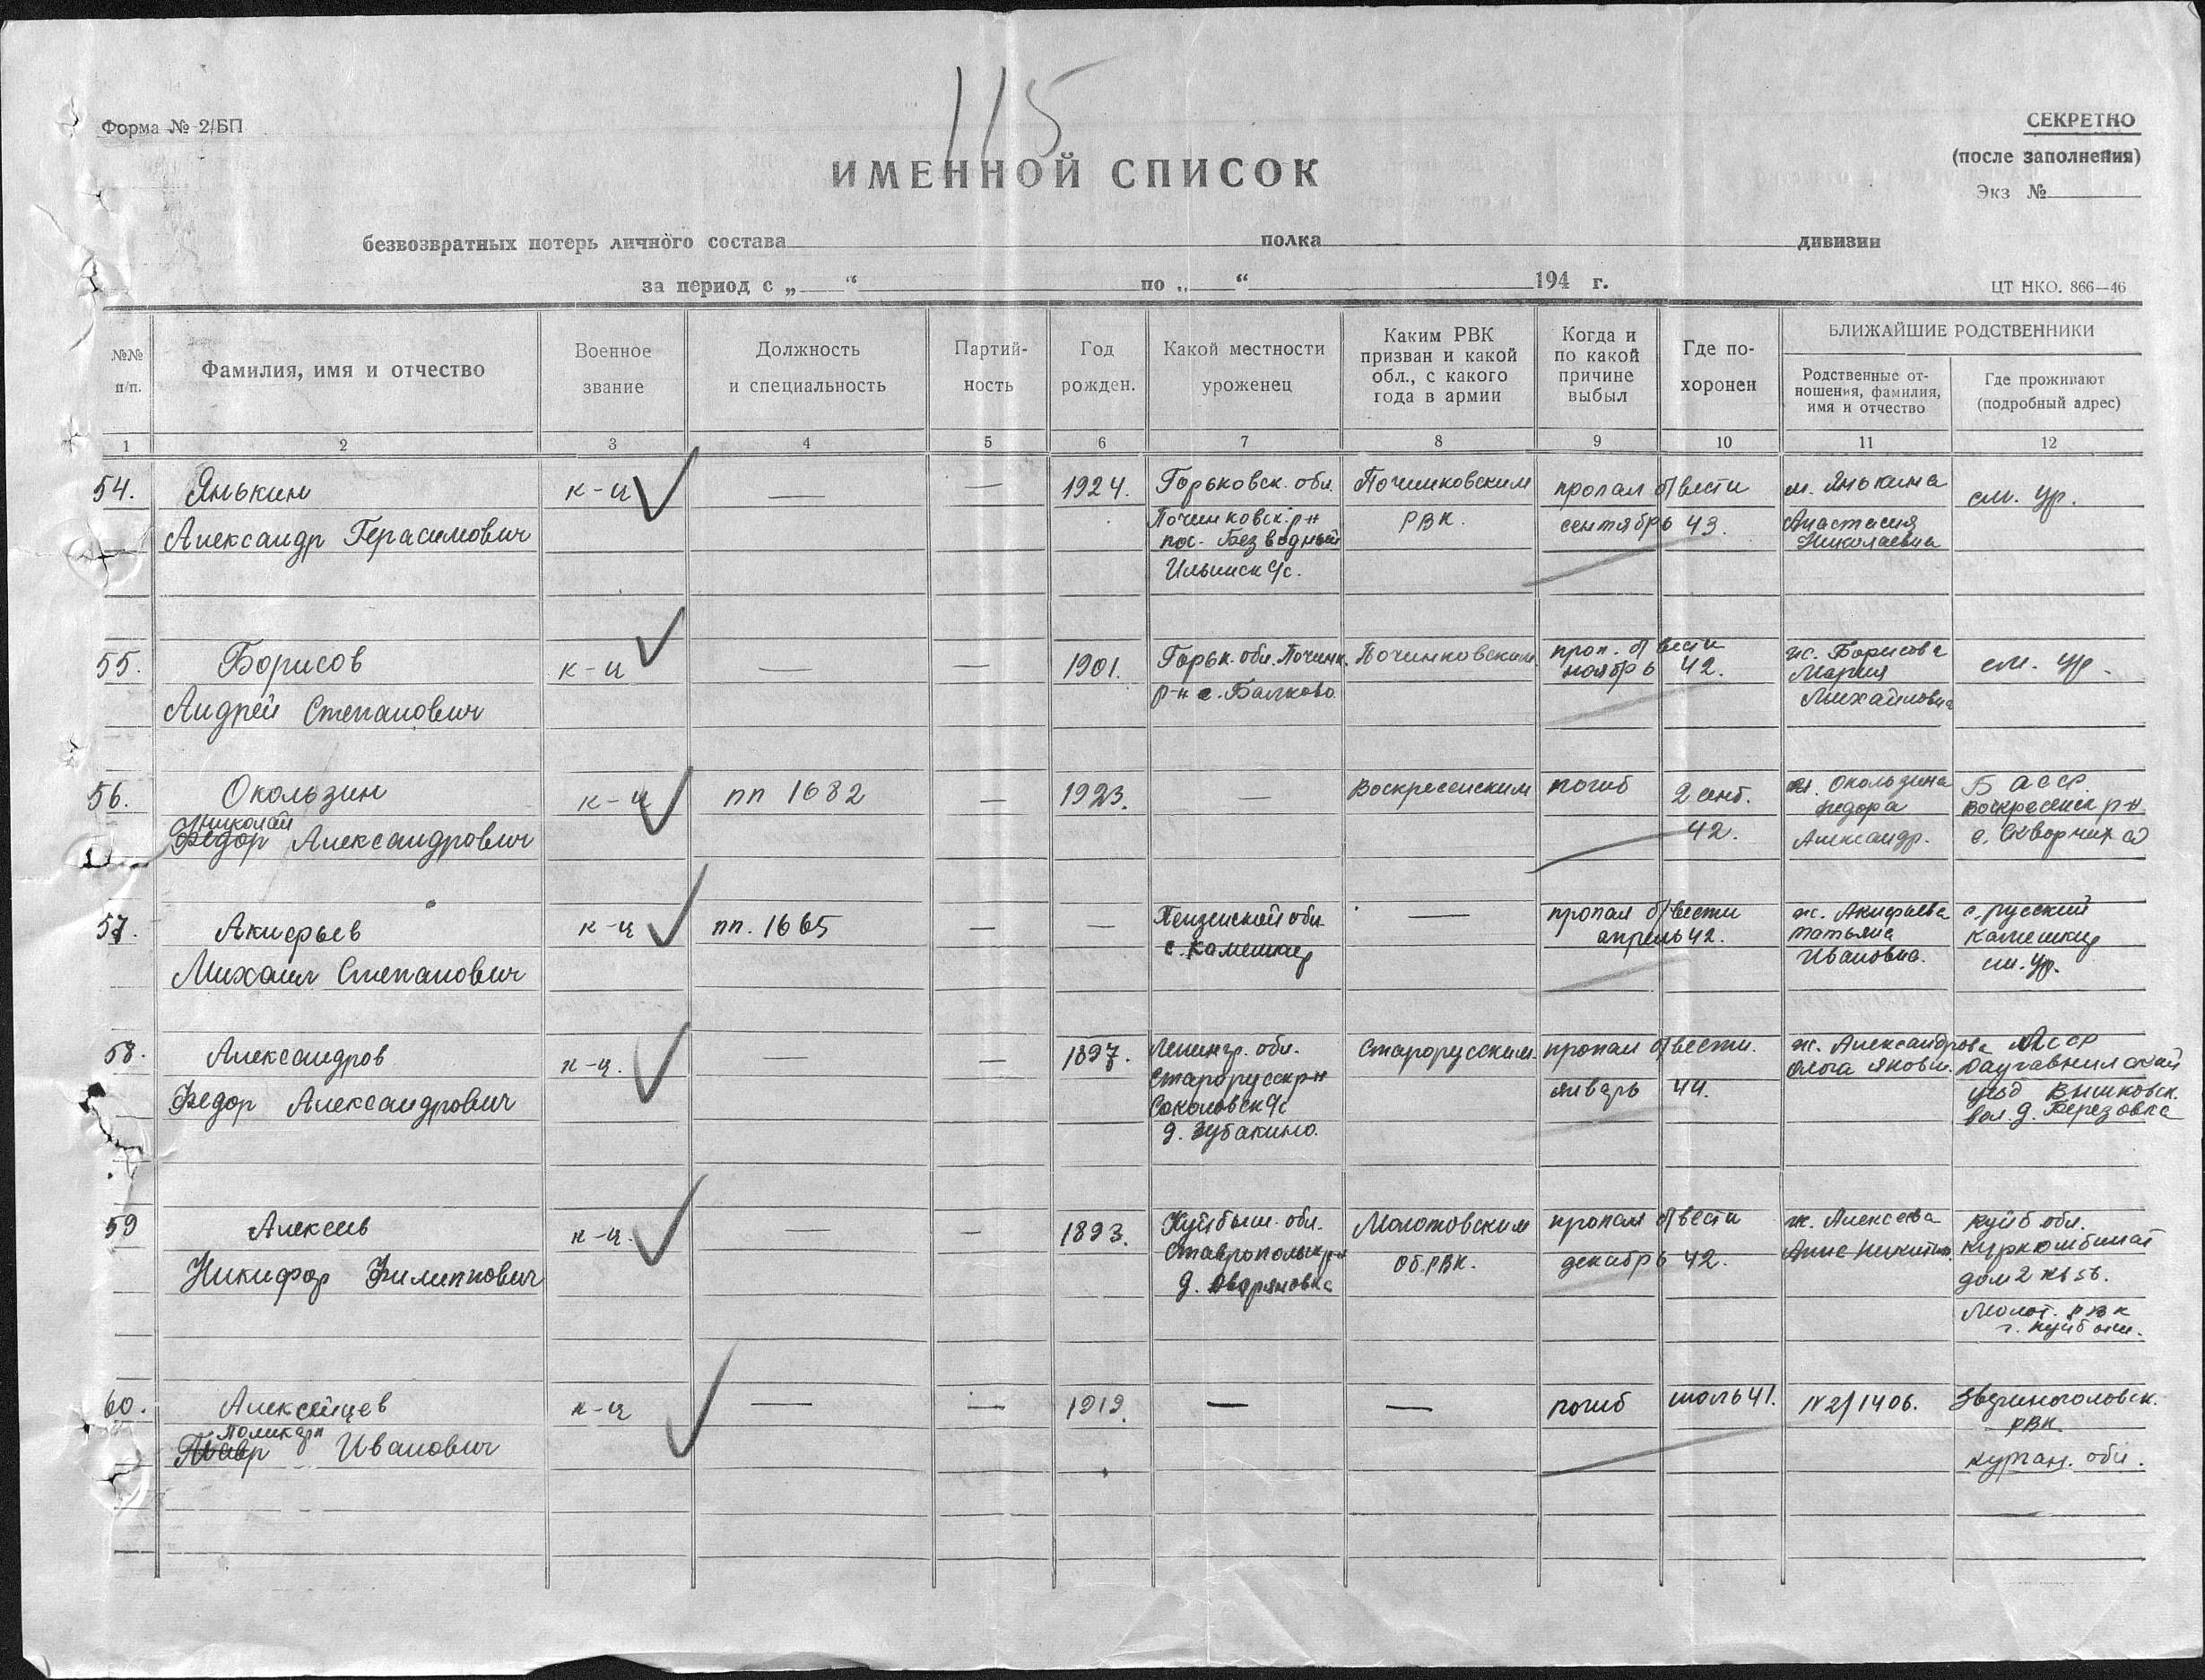 115
Форма № 2/БП
СЕКРЕТНО
(после заполнения)
Экз №
ИМЕННОЙ СПИСОК
безвозвратных потерь личного состава полка дивизии
за период с „ “ по „ “ 194 г.
ЦТ НКО. 866—46
№№ п/п.
Фамилия, имя и отчество
Военное звание
Должность и специальность
Партий-ность
Год рожден.
Какой местности уроженец
Каким РВК призван и какой обл., с какого года в армии
Когда и по какой причине выбыл
Где по-хоронен
БЛИЖАЙШИЕ РОДСТВЕННИКИ
Родственные от-ношения, фамилия, имя и отчество
Где проживают (подробный адрес)
1 2 3 4 5 6 7 8 9 10 11 12
54. Янькин к-ц — — 1924. Горьковск. обл. Починковским пропал б/вести м. Янькина см. ур.
Александр Герасимович Починковск. р-н РВК. сентябрь 43. Анастасия
пос. Безводный Николаевна
Ильинск с/с.
55. Борисов к-ц — — 1901. Горьк. обл. Починк. Починковским проп. б/вести ж. Борисова см. ур.
Андрей Степанович р-н с. Балково ноябрь 42. Мария
Михайловна
56. Окользин к-ц пп 1682 — 1923. — Воскресенским погиб 2 сент. Окользина БАССР
Николай
Федор Александрович 42. Федора Воскресенск р-н
Александр. с.
57. Акифьев к-ц пп. 1665 — — Пензенской обл — пропал б/вести ж. Акифьева с. русский
Михаил Степанович с. Камешкир апрель 42. Татьяна Камешкир
Ивановна. см. ур.
58. Александров к-ц. — — 1897. Ленингр. обл. Старорусским пропал б/вести. ж. Александрова
Федор Александрович Старорусск р-н январь 44. Ольга Яковл.
Соколовск с/с уезд Вышковск.
д. Зубакино. вол. д. Березовка
59 Алексеев к-ц. — — 1893. Куйбыш. обл. Молотовским пропал б/вести ж. Алексеева Куйб обл.
Никифор Филиппович Ставропольск р-н ОБ.РВК. декабрь 42. Анне Никитич.
д. дом 2 кв 56.
Молот. РВК
г. Куйбыш.
60. Алексейцев к-ц — — 1919. — — погиб июль 41. IV 2/1406. Звериноголовск.
Поликарп РВК.
Иванович Курган. обл.